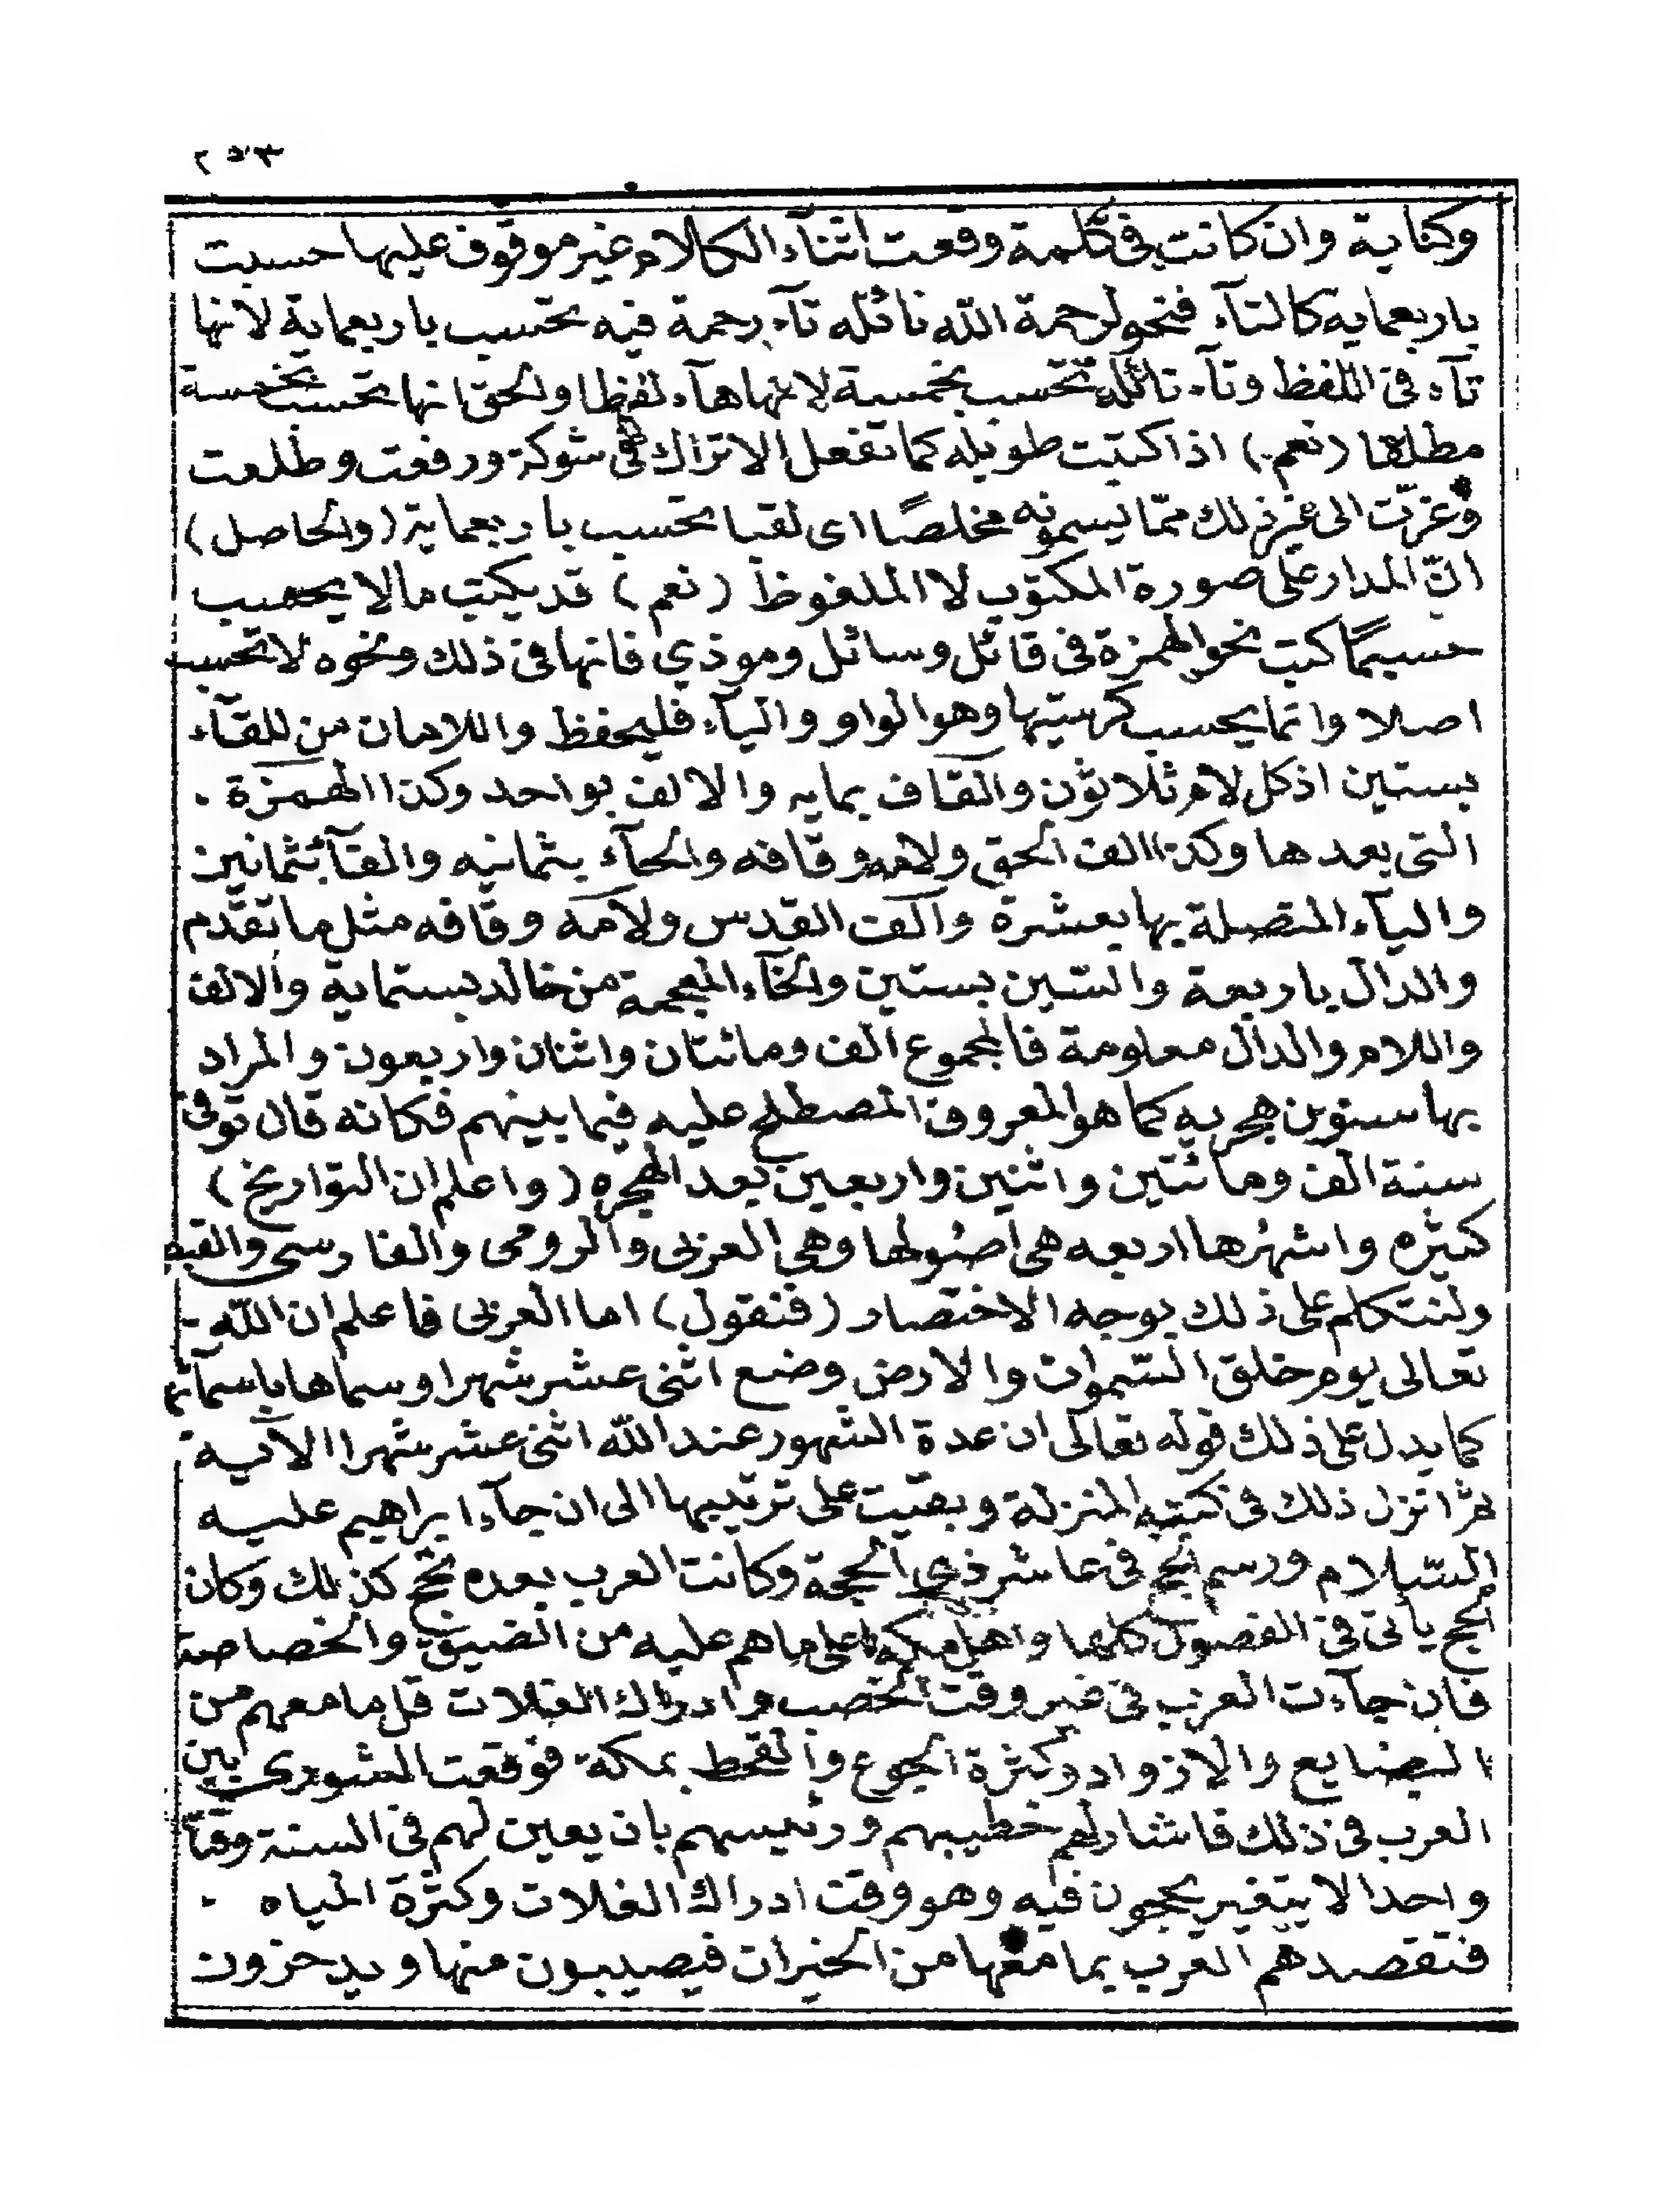 ٢٥٣
وكناية وان كانت في كلمة وقعت اثنآء الكلام غير موقوف عليها حسبت
باربعمايه كالتآء فنحو لرحمة الله نائله تآء رحمة فيه تحسب باربعماية لانها
تآء في اللفظ وتآء نائله تحسب بخمسة لانها هآء لفظا والحق انها تحسب بخمسة
مطلقا (نعم) اذا كتبت طويله كما تفعل الاتراك في شوكة ورفعت وطلعت
وعزت الى غير ذلك ممّا يسمونه مخلصًا اى لقبا تحسب باربعماية (والحاصل)
انّ المدار على صورة المكتوب لا الملفوظ (نعم) قد يكتب مالا يحسب
حسيمًا كتب نحو الهمزة فى قائل وسائل وموذي فانها فى ذلك ونحوه لا تحسب
اصلا وانما يحسب كرسيتها وهو الواو واليآء فليحفظ واللامان من للقآء
بستين اذ كل لام ثلاثون والقاف بمايه والالف بواحد وكذا الهمزة .
التى بعدها وكذا الف الحق ولامه وقافه والحآء بثمانيه والفآء بثمانين
واليآء المتصلة بها بعشرة والف القدس ولامه وقافه مثل ما تقدم
والدال باربعة والسين بستين والخآء المعجمة من خالد بستماية والالف
واللام والدال معلومة فالمجموع الف ومائتان واثنان واربعون والمراد
بها سنون هجريه كما هو المعروف المصطلح عليه فيما بينهم فكانه قال توفى
سنة الف ومائتين واثنين واربعين بعد الهجره (واعلم ان التواريخ)
كثيره واشهرها اربعه هى اصولها وهى العربى والرومى والفارسى والقبط
ولنتكلم على ذلك بوجه الاختصار (فنقول) اما العربى فاعلم ان الله
تعالى يوم خلق السّموات والارض وضع اثنى عشر شهرا وسماها باسمآئها
كما يدل على ذلك قوله تعالى ان عدة الشهور عند الله اثنى عشر شهرا الآية
ثم انزل ذلك فى كتبه المنزلة وبقيت على ترتيبها الى ان جآء ابراهيم عليه
السّلام ورسم الحج فى عاشر ذي الحجة وكانت العرب بعده تحج كذلك وكان
الحج يأتى فى الفصول كلها واهل مكه على ما هم عليه من الضيق والخصاصة
فان جآءت العرب فى غير وقت الخصب وادراك الغلات قل ما معهم من
البضايع والازواد وكثرة الجوع والقحط بمكة فوقعت المشورى بين
العرب فى ذلك فاشار لهم خطيبهم ورئيسهم بان يعين لهم فى السنة وقتاً
واحدا لا يتغير يحجون فيه وهو وقت ادراك الغلات وكثرة المياه .
فتقصدهم العرب بما معها من الخيرات فيصيبون منها ويدخرون